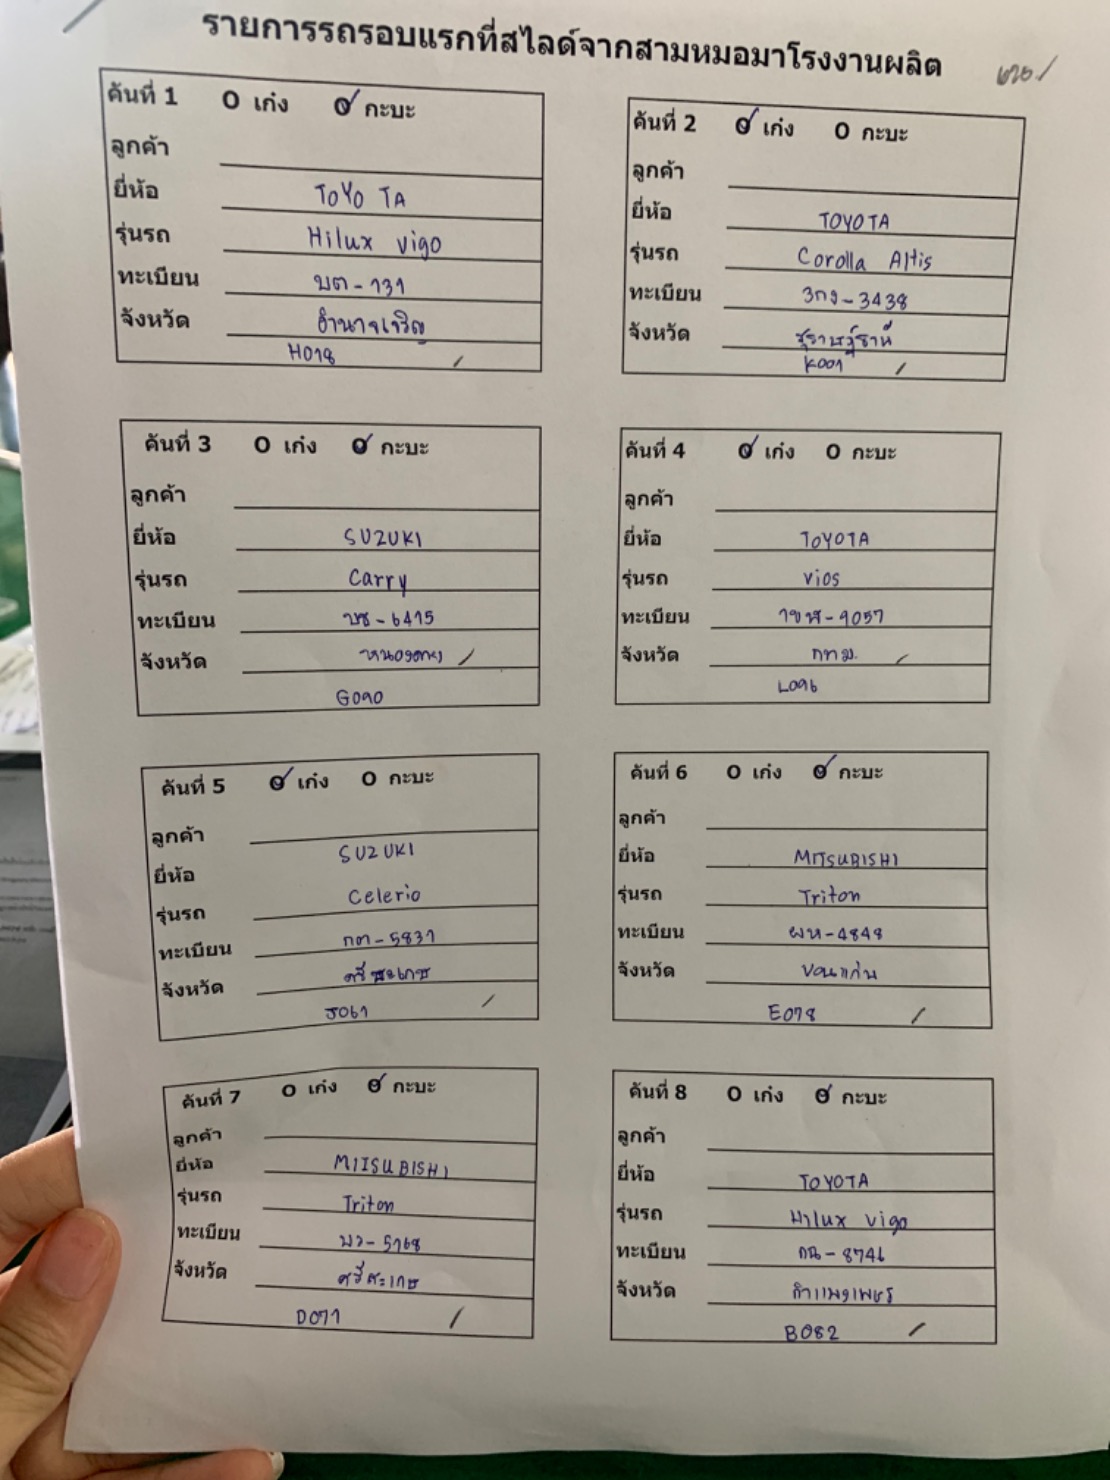 รายการรถรอบแรกที่สไลด์จากสามหมอมาโรงงานผลิต
คันที่ 1 O เก๋ง O กะบะ
ลูกค้า
ยี่ห้อ TOYOTA
รุ่นรถ Hilux vigo
ทะเบียน บต-131
จังหวัด อำนาจเจริญ
H018
คันที่ 2 O เก๋ง O กะบะ
ลูกค้า
ยี่ห้อ TOYOTA
รุ่นรถ Corolla Altis
ทะเบียน 3กง-3438
จังหวัด สุราษฎร์ธานี
K001
คันที่ 3 O เก๋ง O กะบะ
ลูกค้า
ยี่ห้อ SUZUKI
รุ่นรถ Carry
ทะเบียน บธ-6415
จังหวัด
G090
คันที่ 4 O เก๋ง O กะบะ
ลูกค้า
ยี่ห้อ TOYOTA
รุ่นรถ vios
ทะเบียน 1ขฬ-9057
จังหวัด กทม.
L096
คันที่ 5 O เก๋ง O กะบะ
ลูกค้า
ยี่ห้อ SUZUKI
รุ่นรถ Celerio
ทะเบียน กต-5831
จังหวัด ศรีสะเกษ
J061
คันที่ 6 O เก๋ง O กะบะ
ลูกค้า
ยี่ห้อ MITSUBISHI
รุ่นรถ Triton
ทะเบียน ผห-4848
จังหวัด ขอนแก่น
E078
คันที่ 7 O เก๋ง O กะบะ
ลูกค้า
ยี่ห้อ MITSUBISHI
รุ่นรถ Triton
ทะเบียน บว-5768
จังหวัด ศรีสะเกษ
D071
คันที่ 8 O เก๋ง O กะบะ
ลูกค้า
ยี่ห้อ TOYOTA
รุ่นรถ Hilux vigo
ทะเบียน กฉ-8746
จังหวัด กำแพงเพชร
B082